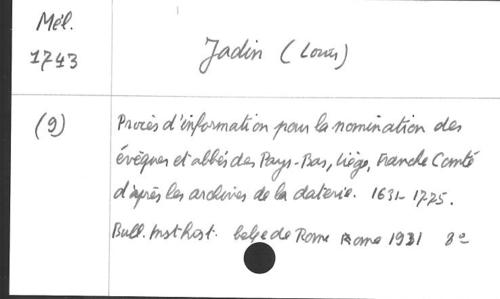 Mél.
1743
Jadin (Louis)
(9)
Procès d'information pour la nomination des
évêques et abbés des Pays-Bas, Liège, Franche Comté
d'après les archives de la daterie. 1631-1725.
Bull. Inst hist. belge de Rome Rome 1931 8°